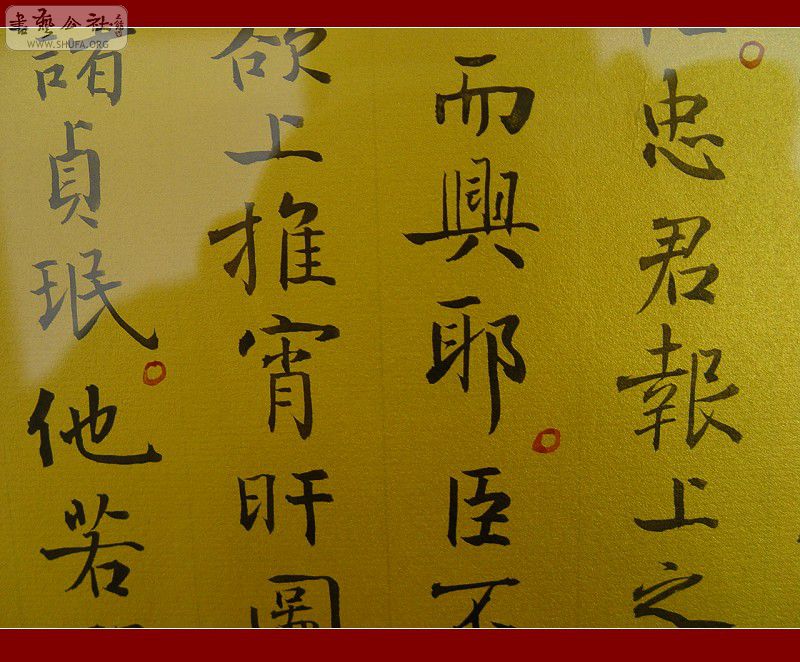 忠君報上之
而興耶臣不
欲上推宵旰圖
諸貞珉他若
書藝公社
WWW.SHUFA.ORG